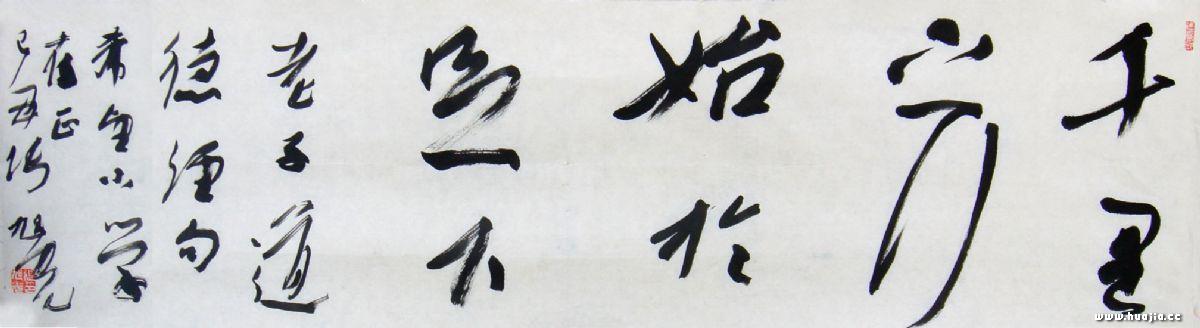 千里
之行
始於
足下
老子道
德經句
希望小學
正
己丑
www.huajia.cc